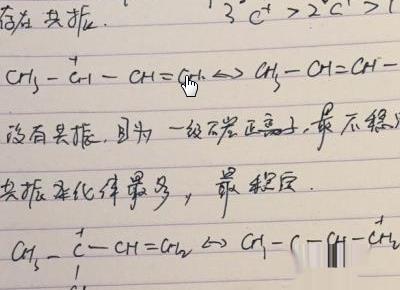 存在共振. 3°C⁺>2°C⁺>1
CH₃-C⁺H-CH=CH₂⇔CH₃-CH=CH-
没有共振, 因为一级碳正离子, 最不稳定
共振杂化体最多, 最稳定.
CH₃-C⁺-CH=CH₂⇔CH₃-C-CH-C⁺H₂